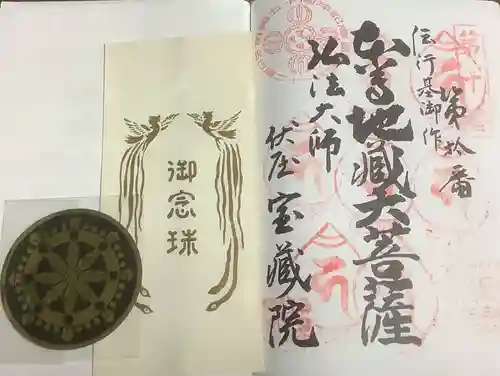 第拾番
伝行基御作
本尊地蔵大菩薩
弘法大師
伏庄宝蔵院
御念珠